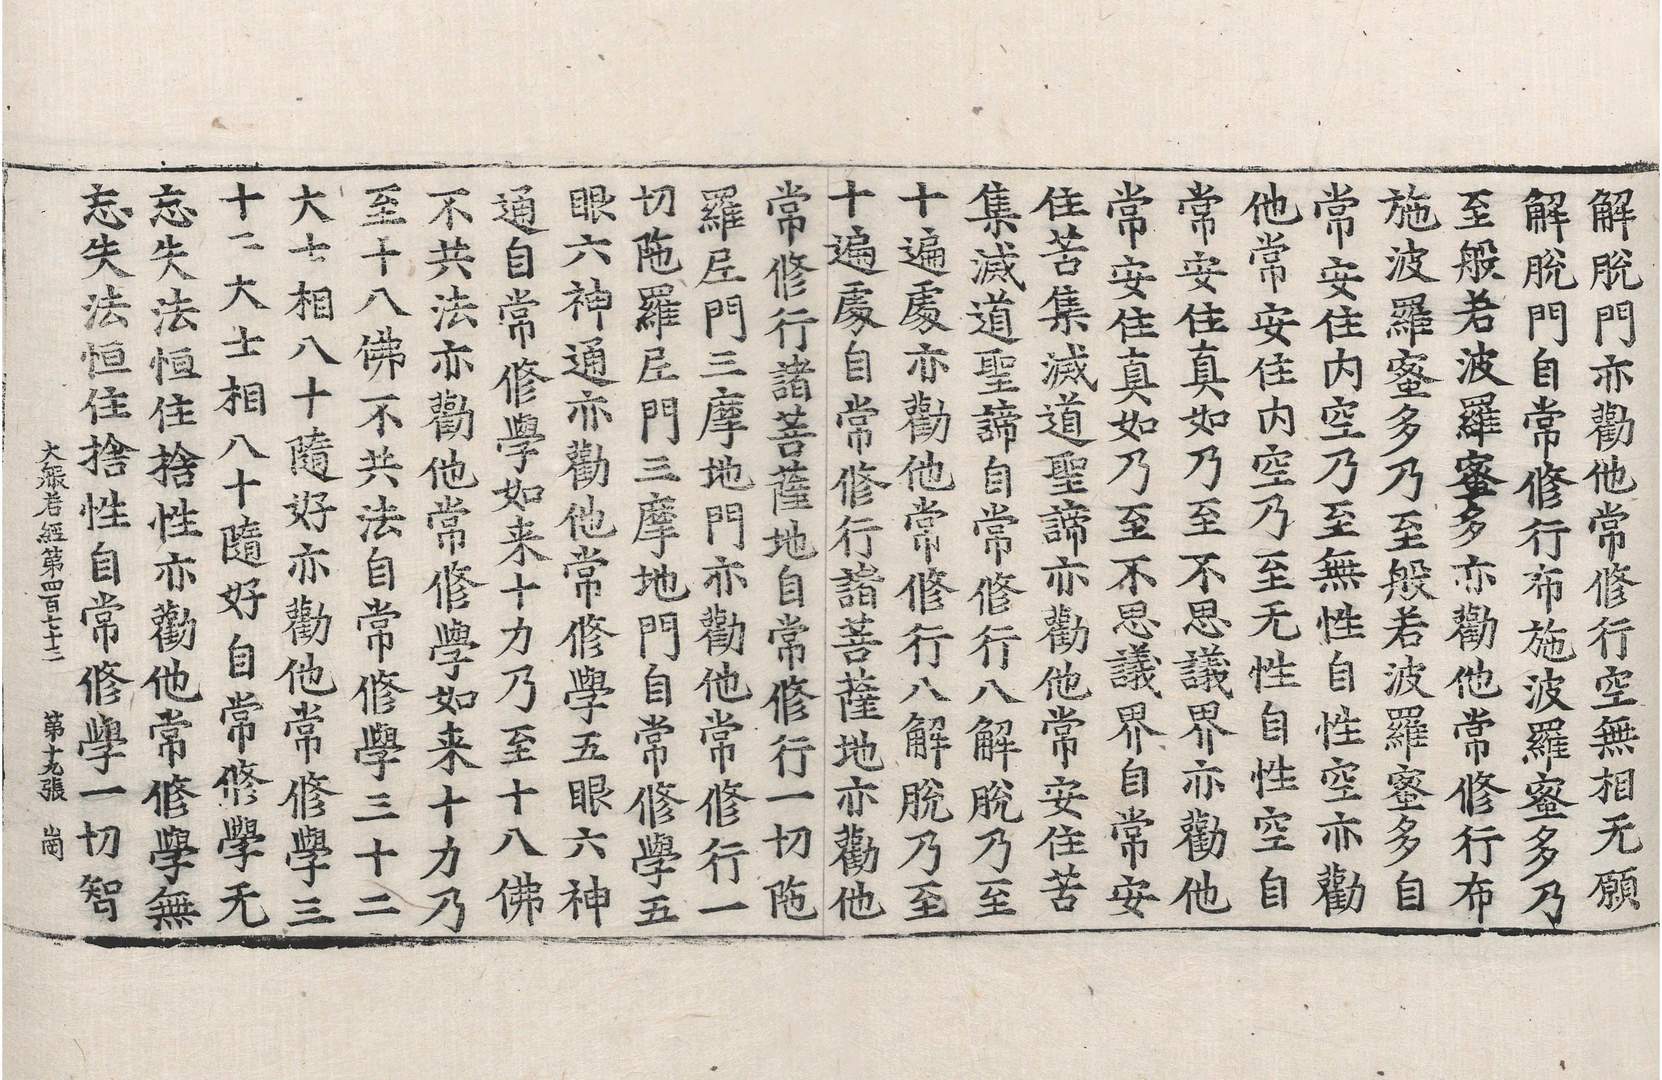 解脫門亦勸他常修行空無相无願
解脫門自常修行布施波羅蜜多乃
至般若波羅蜜多亦勸他常修行布
施波羅蜜多乃至般若波羅蜜多自
常安住内空乃至無性自性空亦勸
他常安住内空乃至无性自性空自
常安住真如乃至不思議界亦勸他
常安住真如乃至不思議界自常安
住苦集滅道聖諦亦勸他常安住苦
集滅道聖諦自常修行八解脫乃至
十遍處亦勸他常修行八解脫乃至
十遍處自常修行諸菩薩地亦勸他
常修行諸菩薩地自常修行一切陁
羅尼門三摩地門亦勸他常修行一
切陁羅尼門三摩地門自常修學五
眼六神通亦勸他常修學五眼六神
通自常修學如来十力乃至十八佛
不共法亦勸他常修學如来十力乃
至十八佛不共法自常修學三十二
大士相八十隨好亦勸他常修學三
十二大士相八十隨好自常修學无
忘失法恒住捨性亦勸他常修學無
忘失法恒住捨性自常修學一切智
大般若經第四百七十二 第十九張 崗